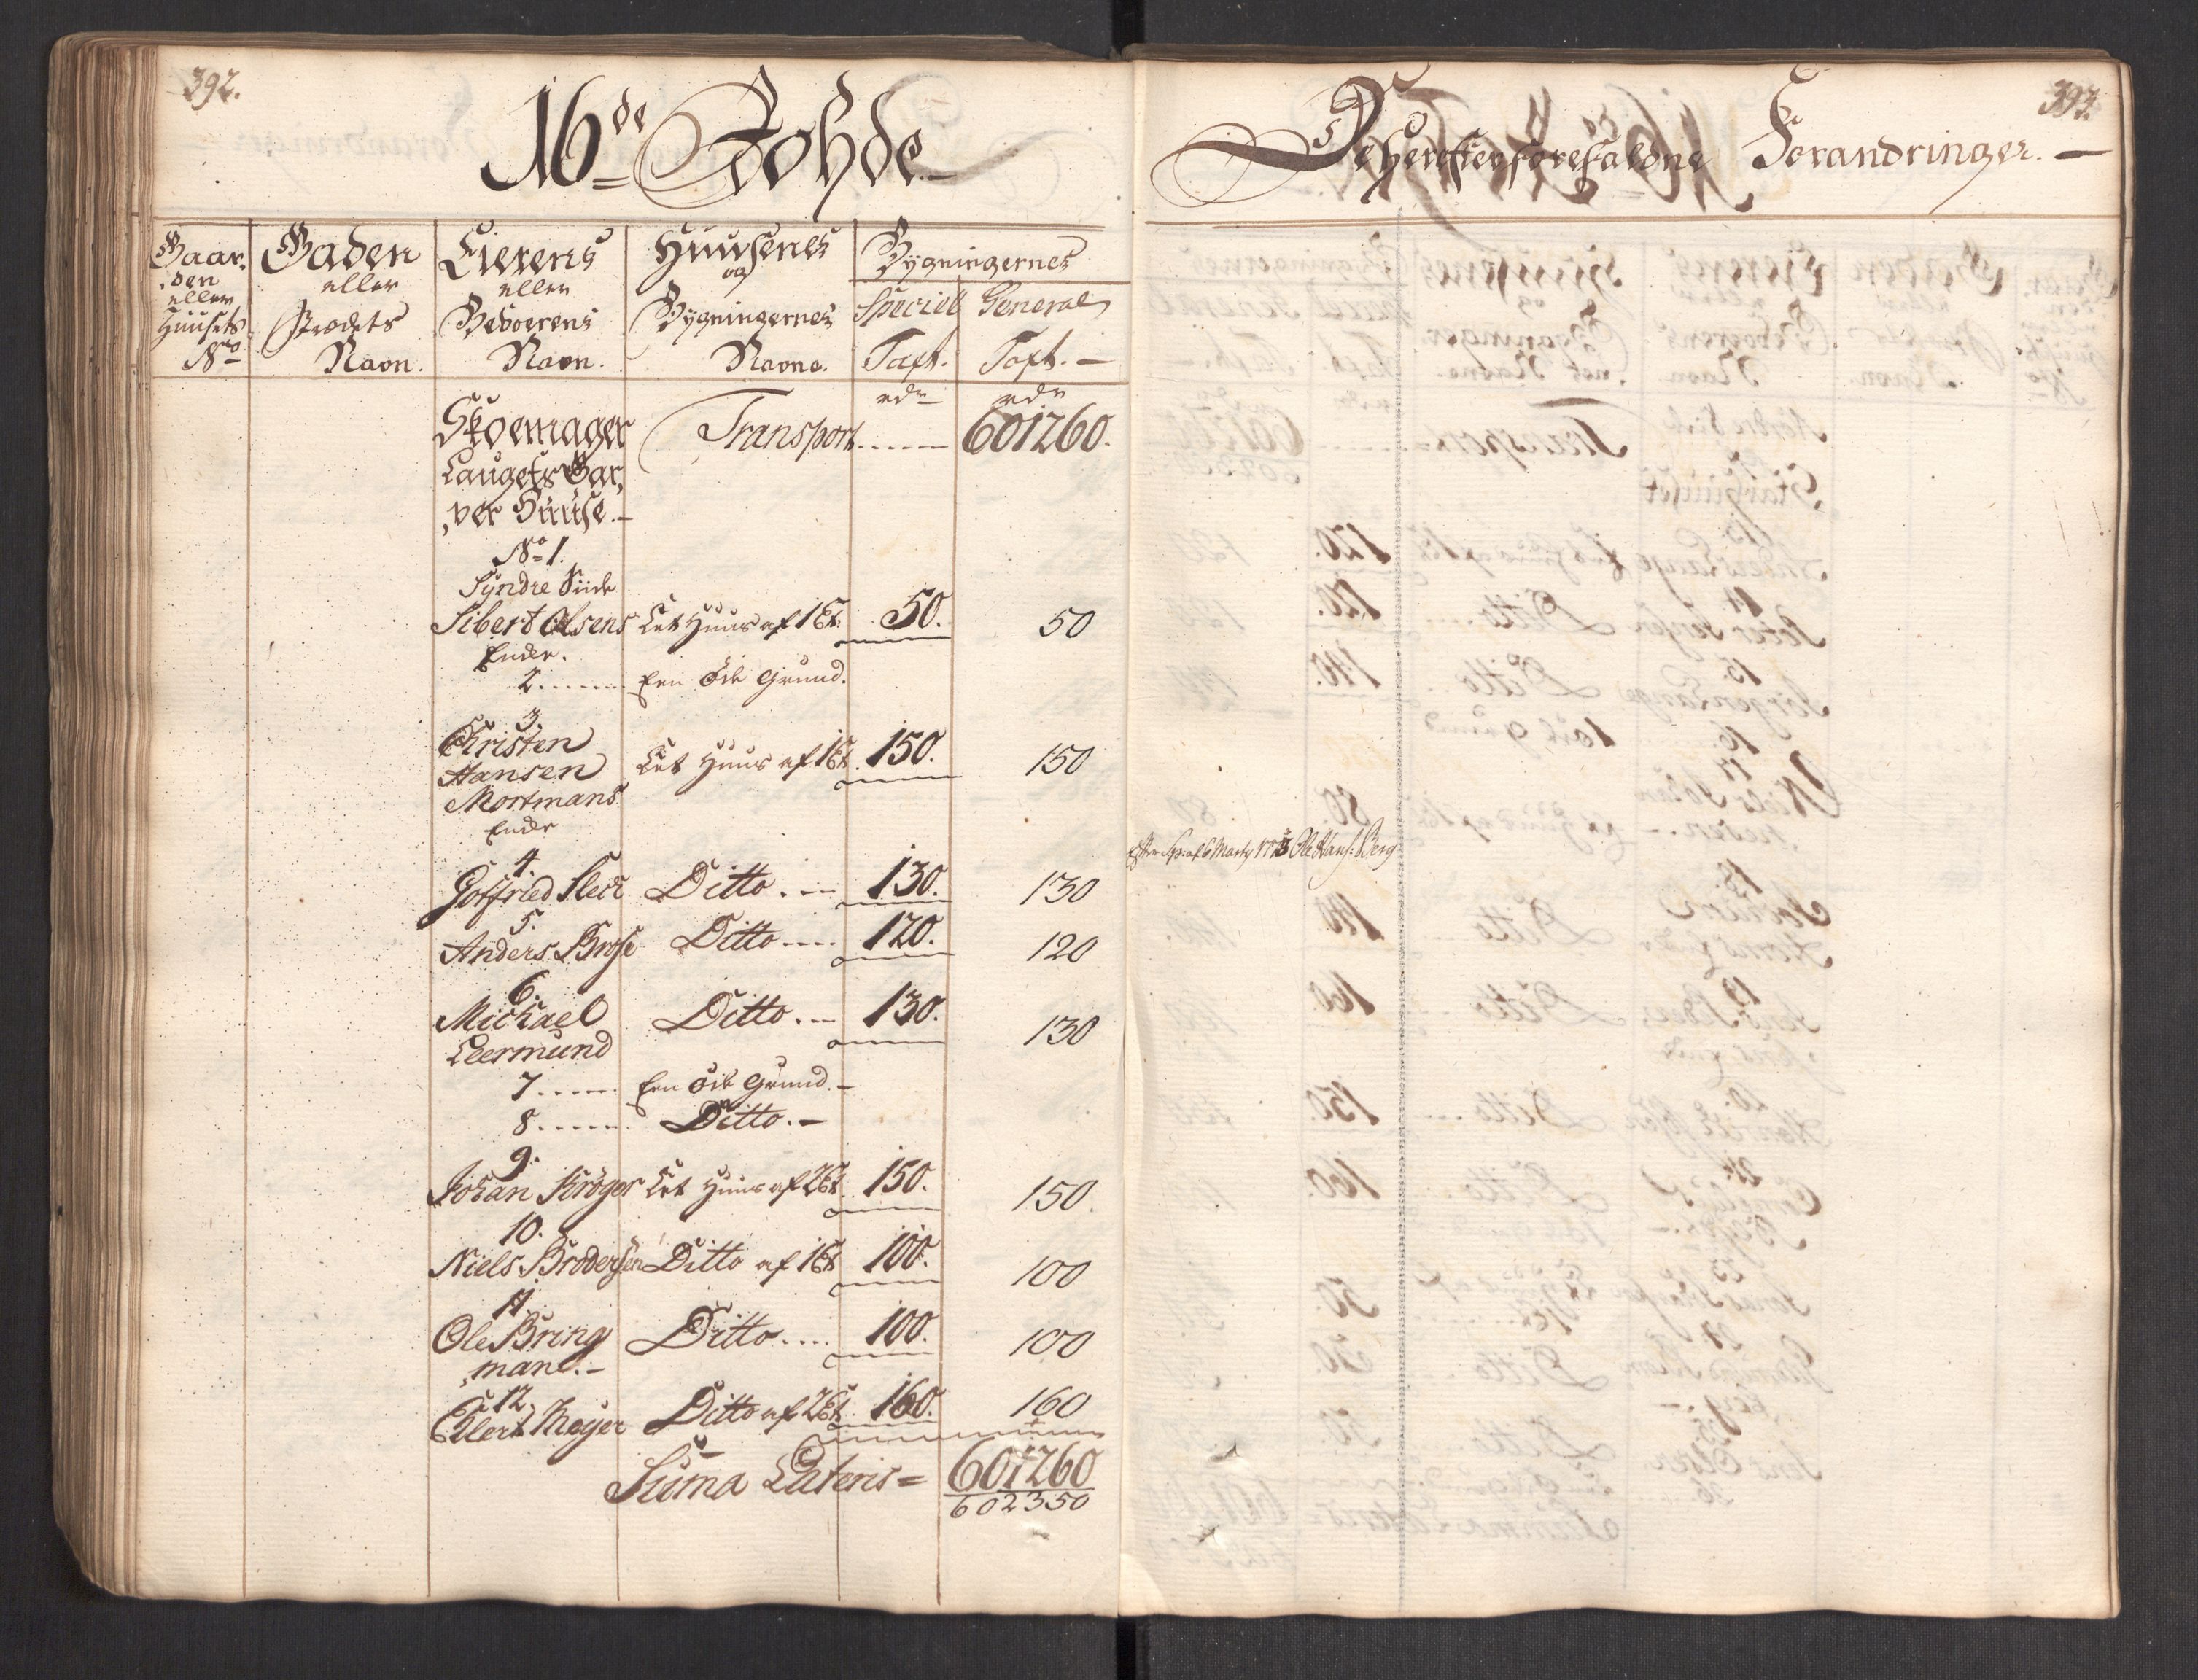 392.
16de Rohde
Gaar,
,den
eller
Huusets
No
Gaden
eller
Strædets
Navn.
Eierens
eller
Beboerens
Navn.
Huusenes
og
Bygningernes
Navne.
Bygningernes
Speciel General
Taxt. Taxt.
rdr rdr
Skoemager Transport 601260.
Laugets Gar,
,ver Huuse.
No 1.
Syndre Siide
Sibert Olsens Let Huus af 1 Et. 50. 50
Enke.
2....... Een Öde Grund.
3.
Christen
Hansen Let Huus af 1 Et. 150. 150
Mortmans
Enke
4.
Gotfried Fleck Ditto. 130. 130
5.
Anders Brose Ditto.... 120. 120
6.
Michael Ditto. 130. 130
Leermund
7...... Een öde Grund.
8...... Ditto.
9.
Johan Kröger Let Huus af 2 Et. 150. 150.
10.
Niels Brodersen Ditto af 1 Et. 100. 100
11.
Ole Bring Ditto.... 100. 100
,mand.
12.
Eilert Meyer Ditto af 2 Et. 160. 160
Suma Lateris = 601260
602350
393.
De herefter forefaldne Forandringer.
Efter 6 Marty Ole Hans: Berg